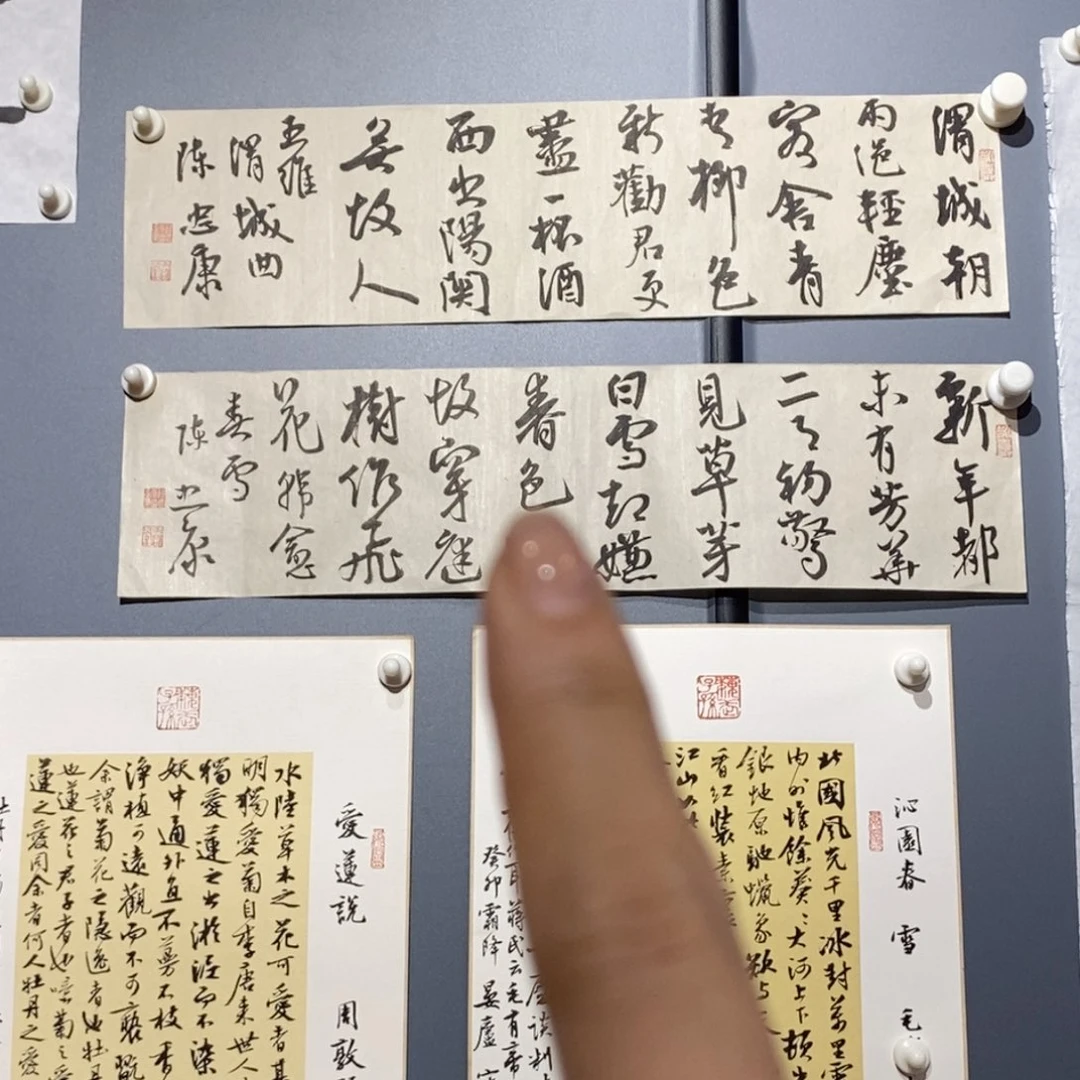 渭城朝
雨浥輕塵
客舍青
青柳色
新勸君更
盡一杯酒
西出陽関
無故人
王維
渭城曲
陳忠康
新年都
未有芳華
二月初驚
見草芽
白雪却嫌
春色
故穿庭
樹作飛
花 韩愈
春雪
陳忠康
沁園春 雪 毛
北國風光千里冰封萬里雪
内外惟餘莽〻大河上下頓失
銀蛇原馳蠟象欲与
看红裝素
江山如
癸卯霜降 晏廬
愛蓮説 周敦頤
水陸草木之花可愛者甚
明獨愛菊自李唐来世人
獨愛蓮之出淤泥而不染
妖中通外直不蔓不枝香
淨植可遠觀而不可褻翫
余謂菊花之隱逸者也牡丹
也蓮花之君子者也噫菊之愛
蓮之愛同余者何人牡丹之愛